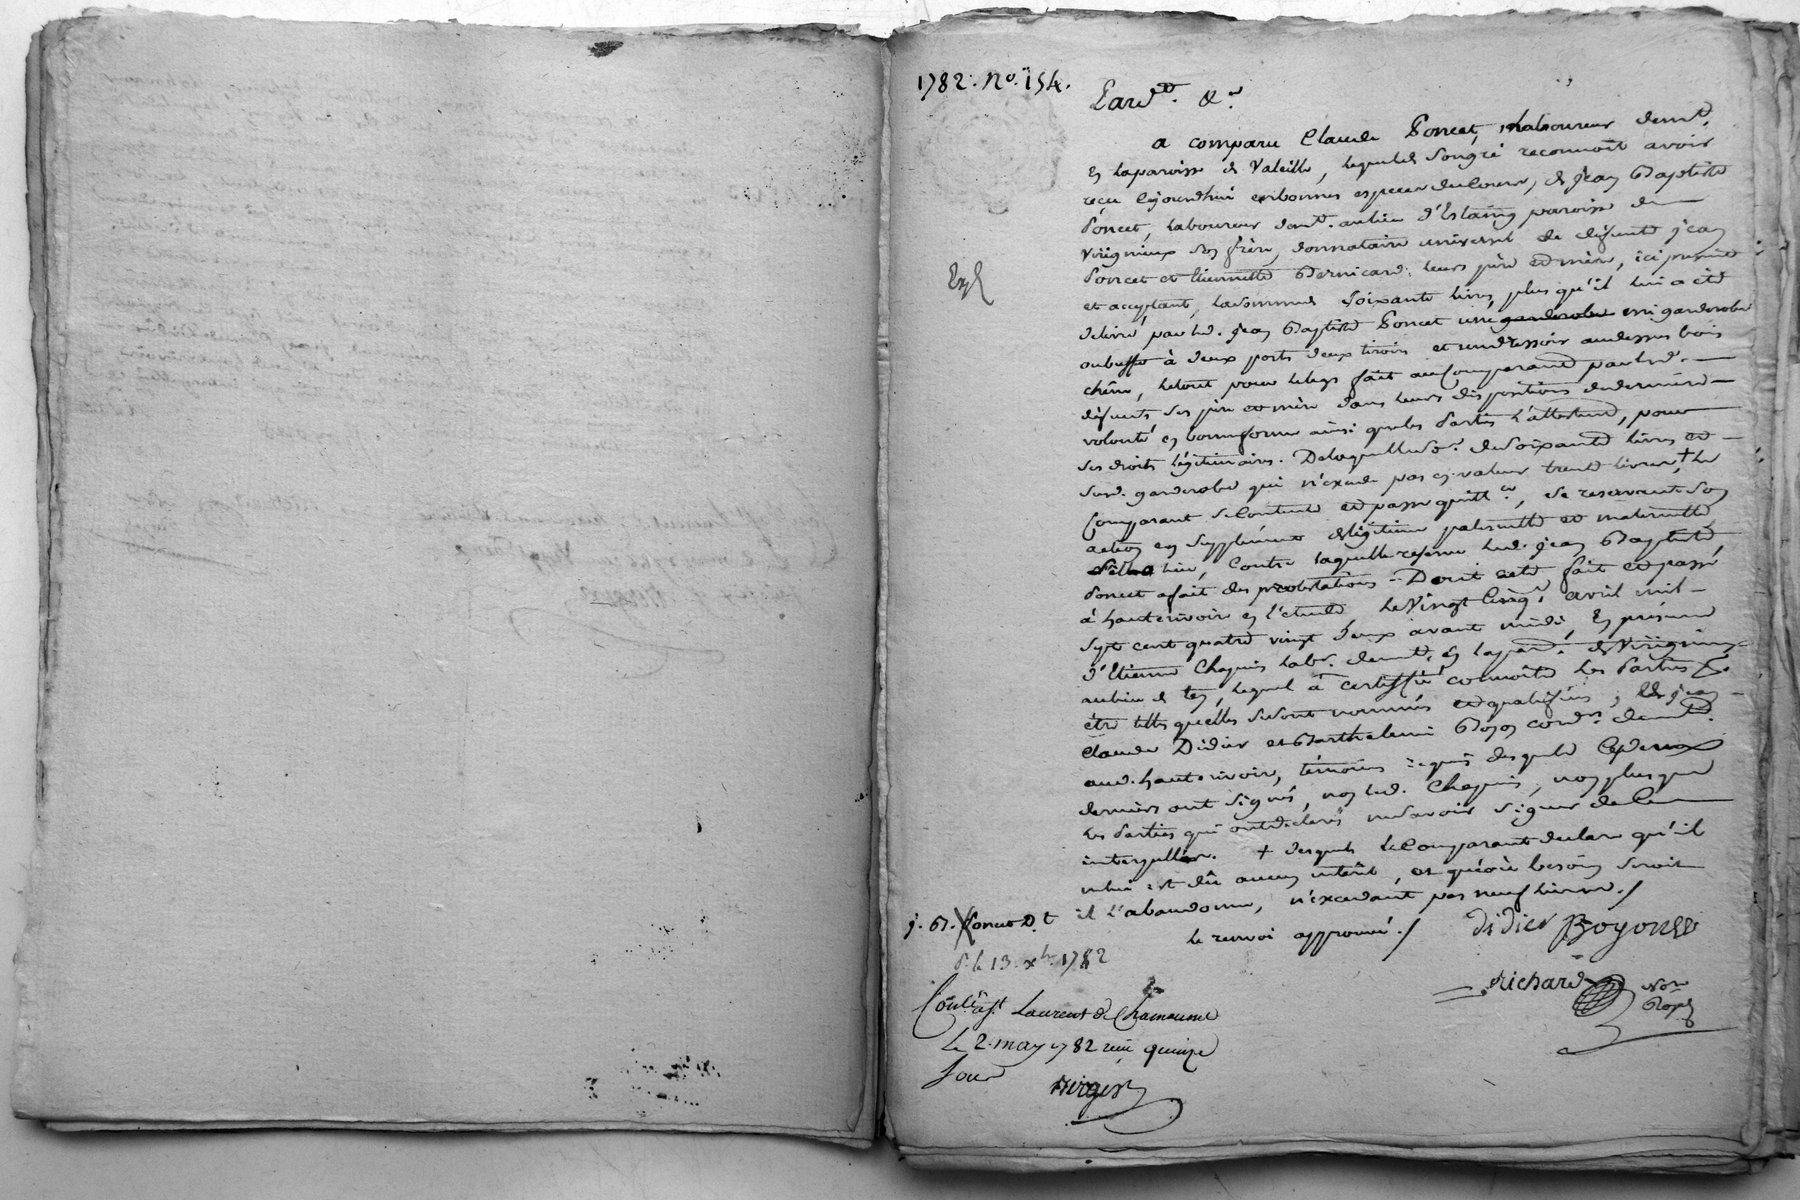 1782. No. 154.
Pard.t &.a
a comparu Claude Poncet, laboureur demt.
en laparoisse de Valeille, lequel de songré reconnoit avoir
reçu cejourdhui en bonnes especes du Cours, de jean Baptiste
Poncet, laboureur demt. au lieu d'Estaing paroisse de
Virignieux son frère, donnataire universel de défunts jean
Poncet et Etiennette Bernicard leurs père et mère, ici présent
et acceptant, la somme de soixante livres, plus qu'il lui a été
délivré, par led. jean Baptiste Poncet une garderobe
ou buffet à deux portes deux tiroirs et un dressoir audessus bois
chêne, le tout pour le legs fait au Comparant par les d.
défunts ses père et mère dans leurs dispositions de dernière
volonté en bonne forme ainsi que les Parties l'attestent, pour
ses droits légitimaires. De laquelle so.e de soixante livres et
susd. garderobe qui n'excede pas en valeur trente livres, + le
Comparant se Contente et passe quitt.ce, se reservant son
action en supplément de légitime paternelle et maternelle
s'il a lieu, Contre laquelle reserve led. jean Baptiste
Poncet a fait des protestations. Dont acte fait et passé
à hauterivoire en l'étude, le Vingt Cinq avril mil
sept cent quatre vingt deux avant midi, En présence
d'Etienne Chapuis labr. demt. en la par.e de Virignieux
au lieu de , lequel a certiffié connoitre les Parties &
être telles quelles se sont nommées et qualifiées, & de jean
Claude Didier et Barthelemi Boyon cord.rs demt.
aud. hauterivoire, témoins requis desquels Ces deux
derniers ont signé, non led. Chapuis, non plus que
les Parties qui ont déclaré ne savoir signer de Ce
interpellés. + desquels le Comparant declare qu'il
ne lui est dû aucun intérêt, et qu'où besoin seroit
il l'abandonne, n'excedant pas neuf livres./
le renvoi approuvé./
didier Boyon
Richard
Nore
Royal
j. B. Poncet D. t
P. le 13. xbre 1782
Contlé à St Laurent de Chamousset
le 2. may 1782 reçu quinze
sous